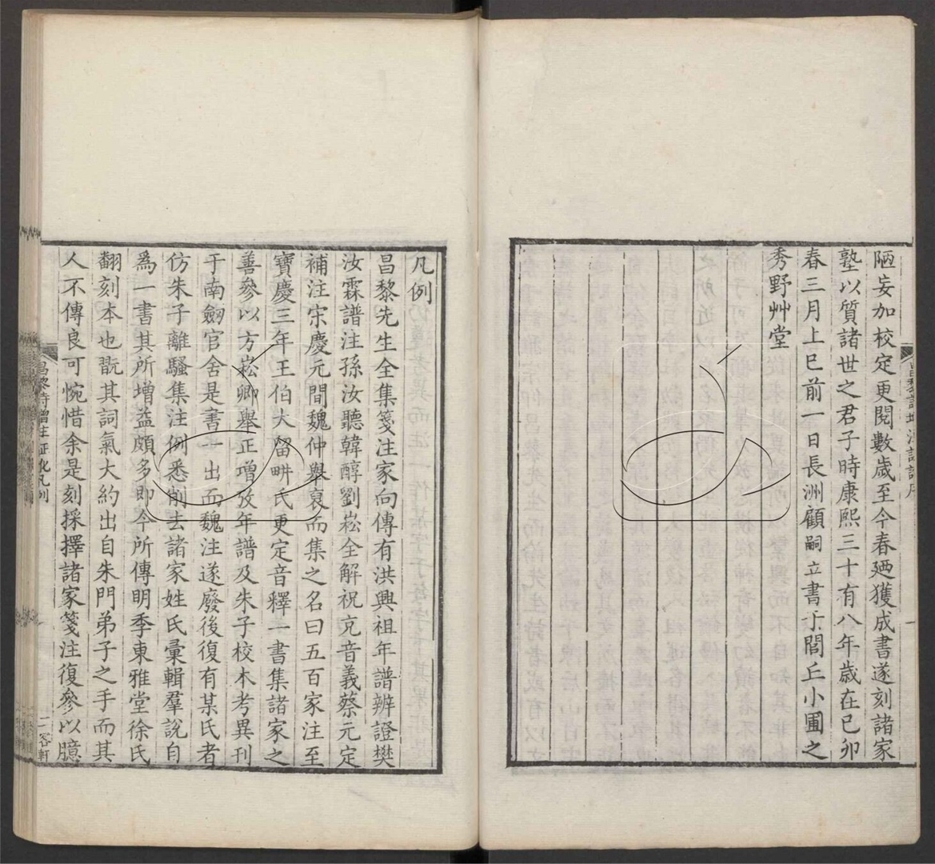 陋妄加校定更閱數歲至今春廼獲成書遂刻諸家
塾以質諸世之君子時康熙三十有八年歲在已夘
春三月上巳前一日長洲顧嗣立書于閭丘小圃之
秀野艸堂
凡例
昌黎先生全集箋注家向傳有洪興祖年譜辨證樊
汝霖譜注孫汝聽韓醇劉崧全解祝充音義蔡元定
補注宋慶元間魏仲舉裒而集之名曰五百家注至
寶慶三年王伯大留畊氏更定音釋一書集諸家之
善參以方崧卿舉正增攷年譜及朱子校本考異刊
于南劒官舍是書一出而魏注遂廢後復有某氏者
仿朱子離騷集注例悉削去諸家姓氏彙輯羣說自
為一書其所增益頗多即今所傳明季東雅堂徐氏
翻刻本也翫其詞氣大約出自朱門弟子之手而其
人不傳良可惋惜余是刻採擇諸家箋注復參以臆